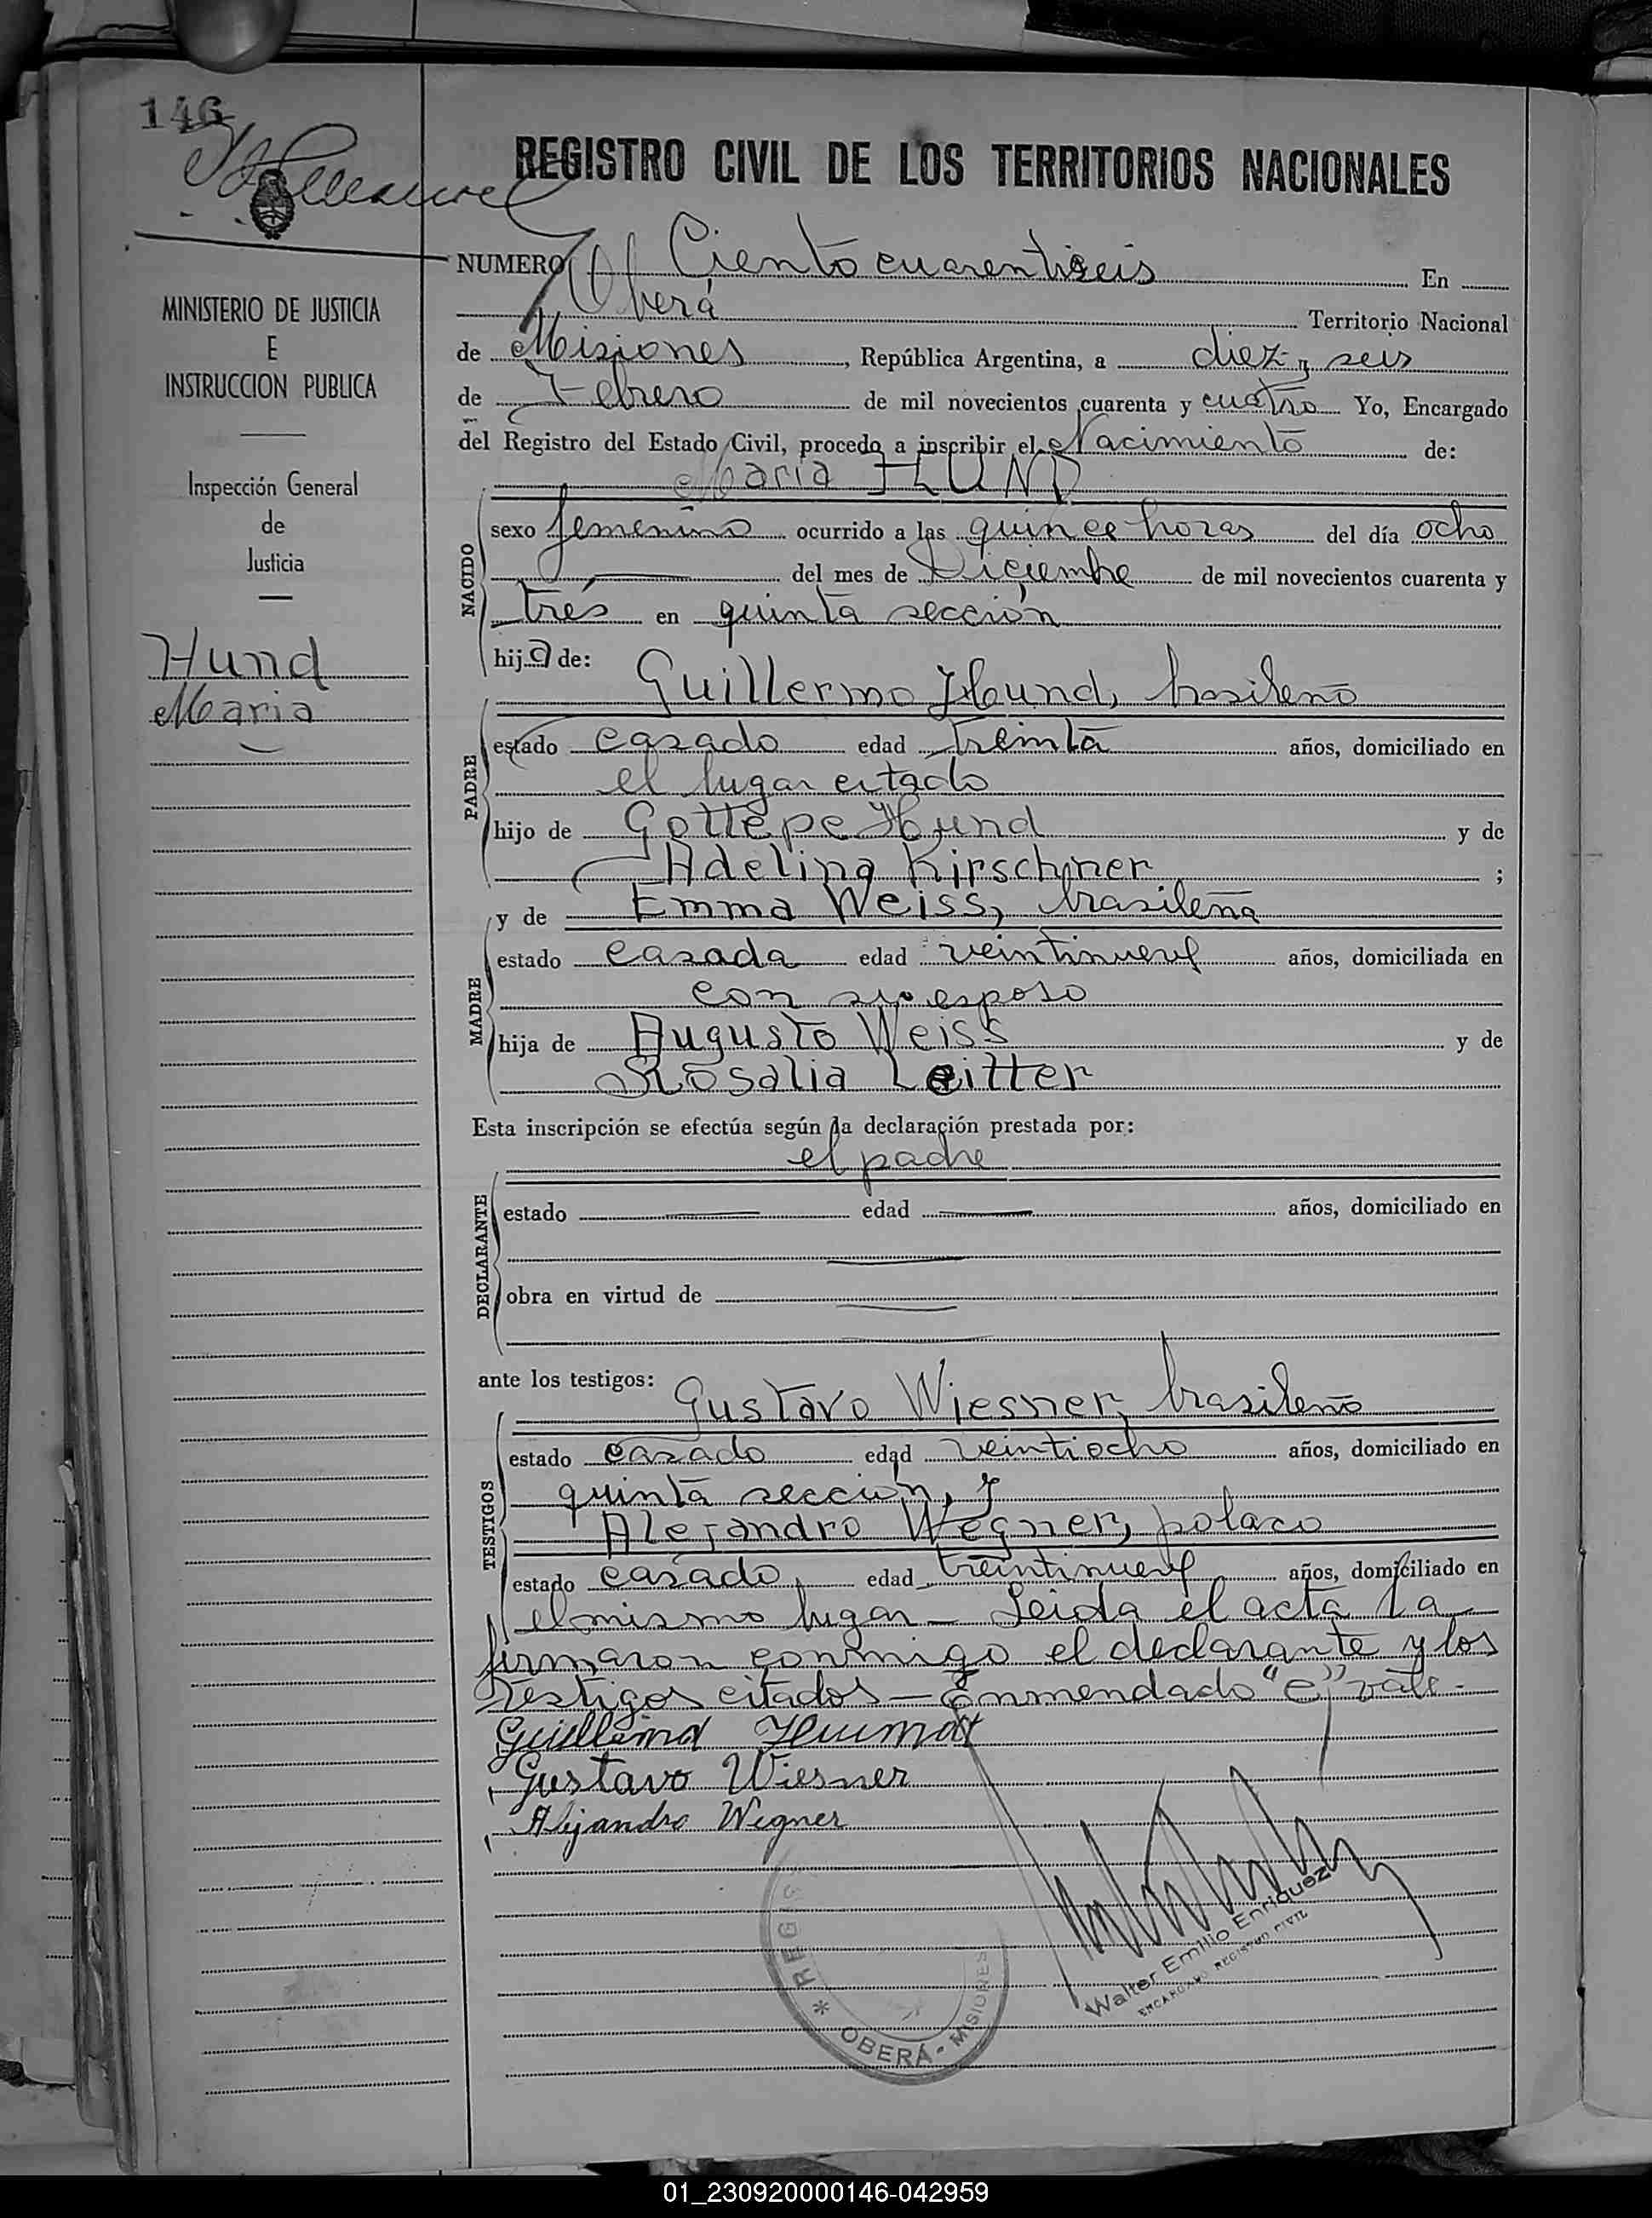 146
REGISTRO CIVIL DE LOS TERRITORIOS NACIONALES
NUMERO Ciento cuarentiseis En
Oberá Territorio Nacional
de Misiones, República Argentina, a diez y seis
de Febrero de mil novecientos cuarenta y cuatro Yo, Encargado
del Registro del Estado Civil, procedo a inscribir el Nacimiento de:
Maria HUND
MINISTERIO DE JUSTICIA
E
INSTRUCCION PUBLICA
Inspección General
de
Justicia
Hund
Maria
NACIDO
sexo femenino ocurrido a las quince horas del día ocho
del mes de Diciembre de mil novecientos cuarenta y
trés en quinta sección
hija de:
Guillermo Hund, brasileño
PADRE
estado casado edad treinta años, domiciliado en
el lugar citado
hijo de Gottepe Hund y de
Adelina Kirschner ;
y de Emma Weiss, brasileña
MADRE
estado casada edad veintinueve años, domiciliada en
con su esposo
hija de Augusto Weiss y de
Rosalia Leitter
Esta inscripción se efectúa según la declaración prestada por:
el padre
DECLARANTE
estado edad años, domiciliado en
obra en virtud de
ante los testigos:
Gustavo Wiesner, brasileño
TESTIGOS
estado casado edad veintiocho años, domiciliado en
quinta sección, y
Alejandro Wegner, polaco
estado casado, edad treintinueve años, domiciliado en
el mismo lugar - Leida el acta la
firmaron conmigo el declarante y los
testigos citados - Enmendado "e", vale -
Gustavo Wiesner
Alejandro Wegner
Walter Emilio Enriquez
ENCARGADO REGISTRO CIVIL
* REGIS
OBERÁ - MISIONES
01_230920000146-042959